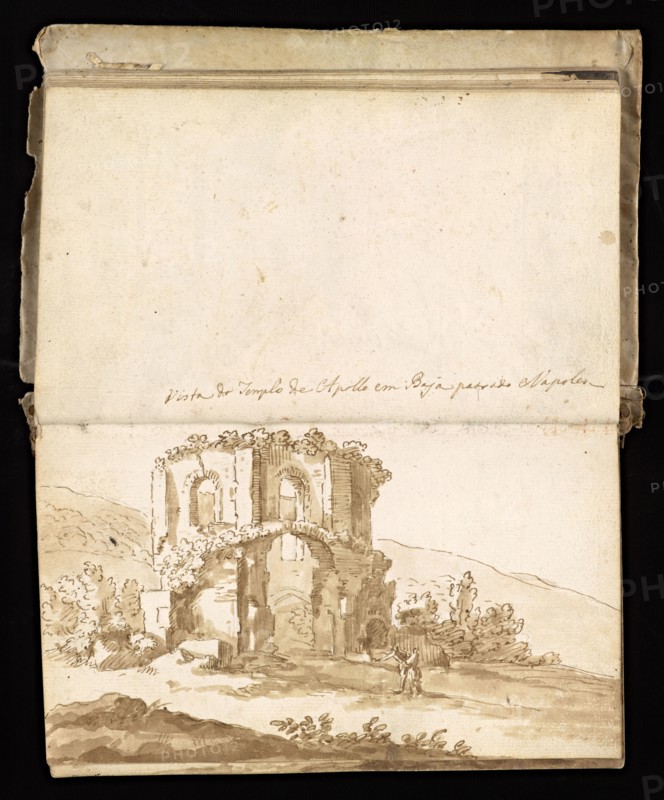 PHOTO12
Vista do Templo de Apollo em Baja Napoles
PHOTO12